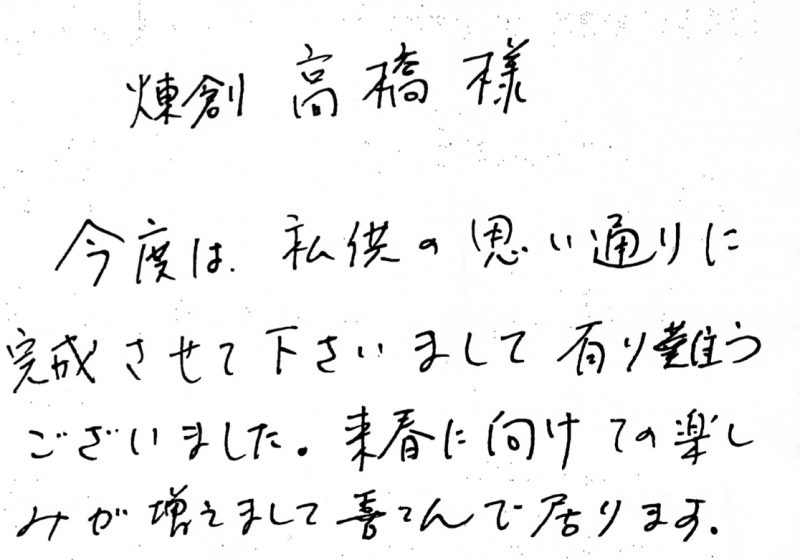 煉創 高橋 様
今度は、私供の思い通りに
完成させて下さいまして有り難う
ございました。来春に向けての楽し
みが増えまして喜てんで居ります。